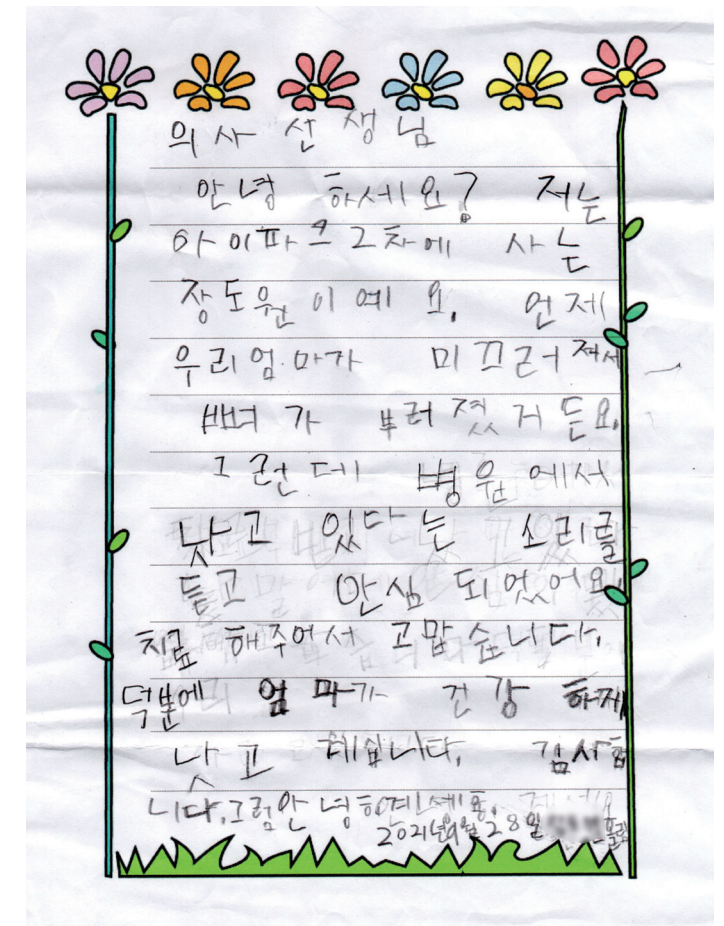 의사 선생님
안녕 하세요? 저는
아이파크2차에 사는
장도원이예요. 언제
우리엄마가 미끄러져서
뼈가 부러졌거든요.
그런데 병원에서
낫고 있다는 소리를
듣고 안심 되었어요.
치료 해주어서 고맙습니다.
덕분에 엄마가 건강 하제
낫고 계십니다. 감사합
니다.그럼안녕히
2021년9월28일 올림